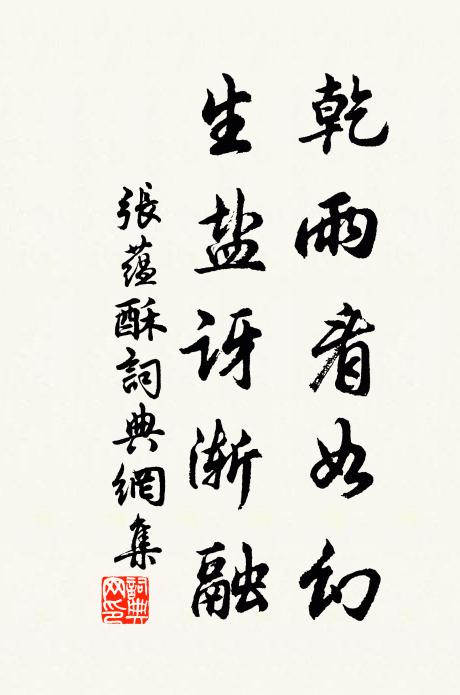 乾雨看如幻
生盐讶渐融
張蘊酥詞典網集
詞典網印